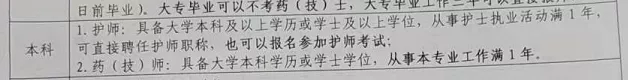 日前毕业）。大专毕业可以不考药（技）士，大专毕业工作三年可以直接报
本科
1.护师：具备大学本科及以上学历或学士及以上学位，从事护士执业活动满 1 年，
可直接聘任护师职称，也可以报名参加护师考试；
2.药（技）师：具备大学本科学历或学士学位，从事本专业工作满 1 年。